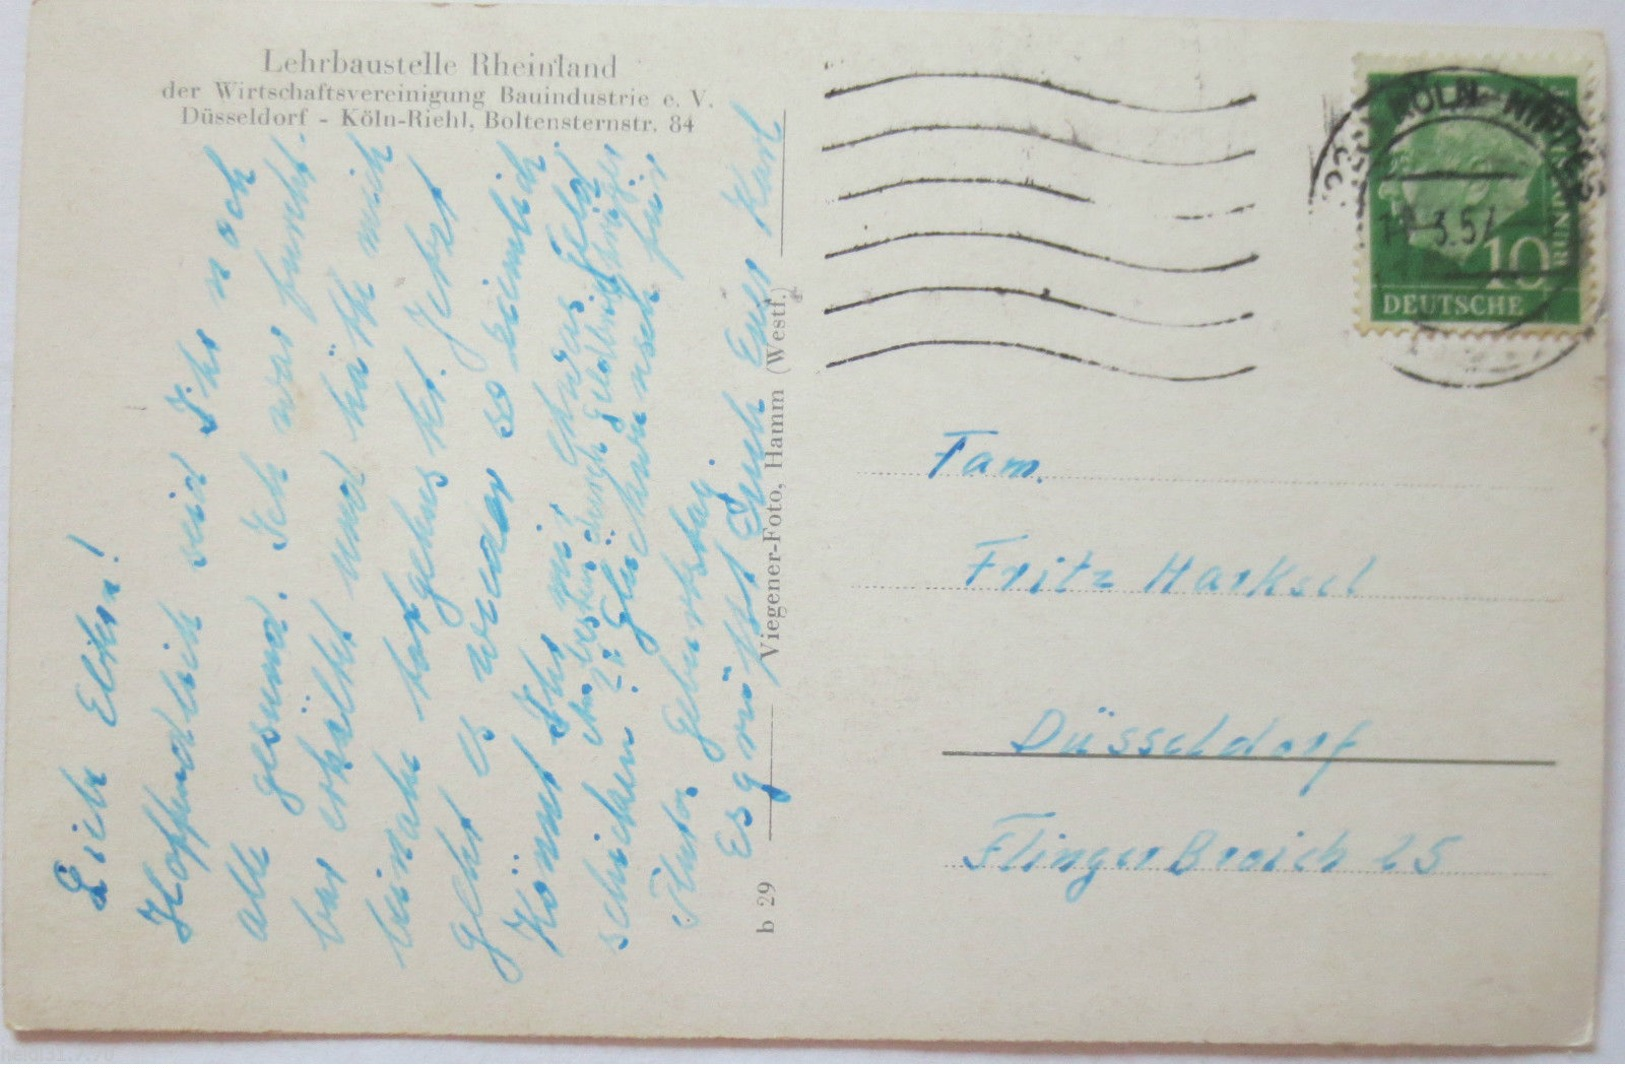 Lehrbaustelle Rheinland
der Wirtschaftsvereinigung Bauindustrie e. V.
Düsseldorf - Köln-Riehl, Boltensternstr. 84
Liebe Eltern!
Hoffendlich seid Ihr noch
alle gesund. Ich war furcht-
bar erkältet und hätte mich
beinahe tot gehustet. Jetzt
geht es wieder so ziemlich.
Könnt Ihr mir etwas Geld
schicken
Glückwunsch für
Geburtstag.
Es grüßt Euch Euer Karl
b 29
Viegener-Foto, Hamm (Westf.)
KÖLN-NIPPES
3.57
10
DEUTSCHE
Fam.
Fritz Harksel
Düsseldorf
Flinger Broich 25
heidi31.7.70